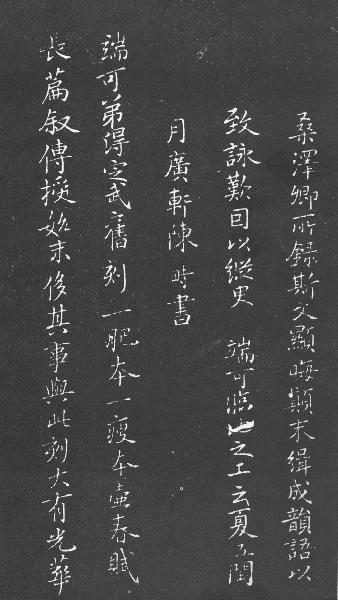 端可弟得定武舊刻一肥本一瘦本壺春賦
長篇叙傳授始末俊其事與此刻大有光華
桑澤卿所録斯文顯晦顛末緝成韻語以
致詠歎回以縱臾　端可臨池之工云夏五閏
月廣軒陳時書